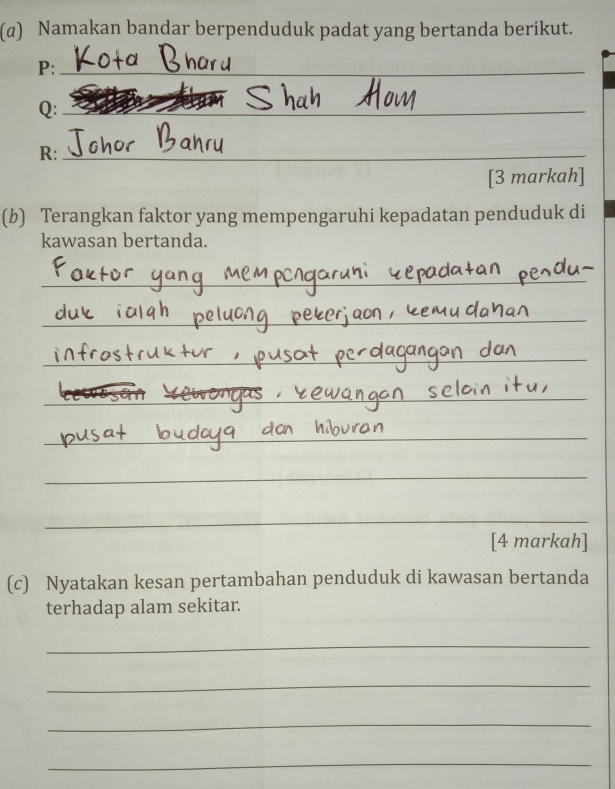 (a) Namakan bandar berpenduduk padat yang bertanda berikut.
P: Kota Bharu
Q: Shah Alam
R: Johor Bahru
[3 markah]
(b) Terangkan faktor yang mempengaruhi kepadatan penduduk di
kawasan bertanda.
Faktor yang mempengaruhi kepadatan pendu-
duk ialah peluang pekerjaan, kemudahan
infrastruktur, pusat perdagangan dan
, kewangan selain itu,
pusat budaya dan hiburan
[4 markah]
(c) Nyatakan kesan pertambahan penduduk di kawasan bertanda
terhadap alam sekitar.